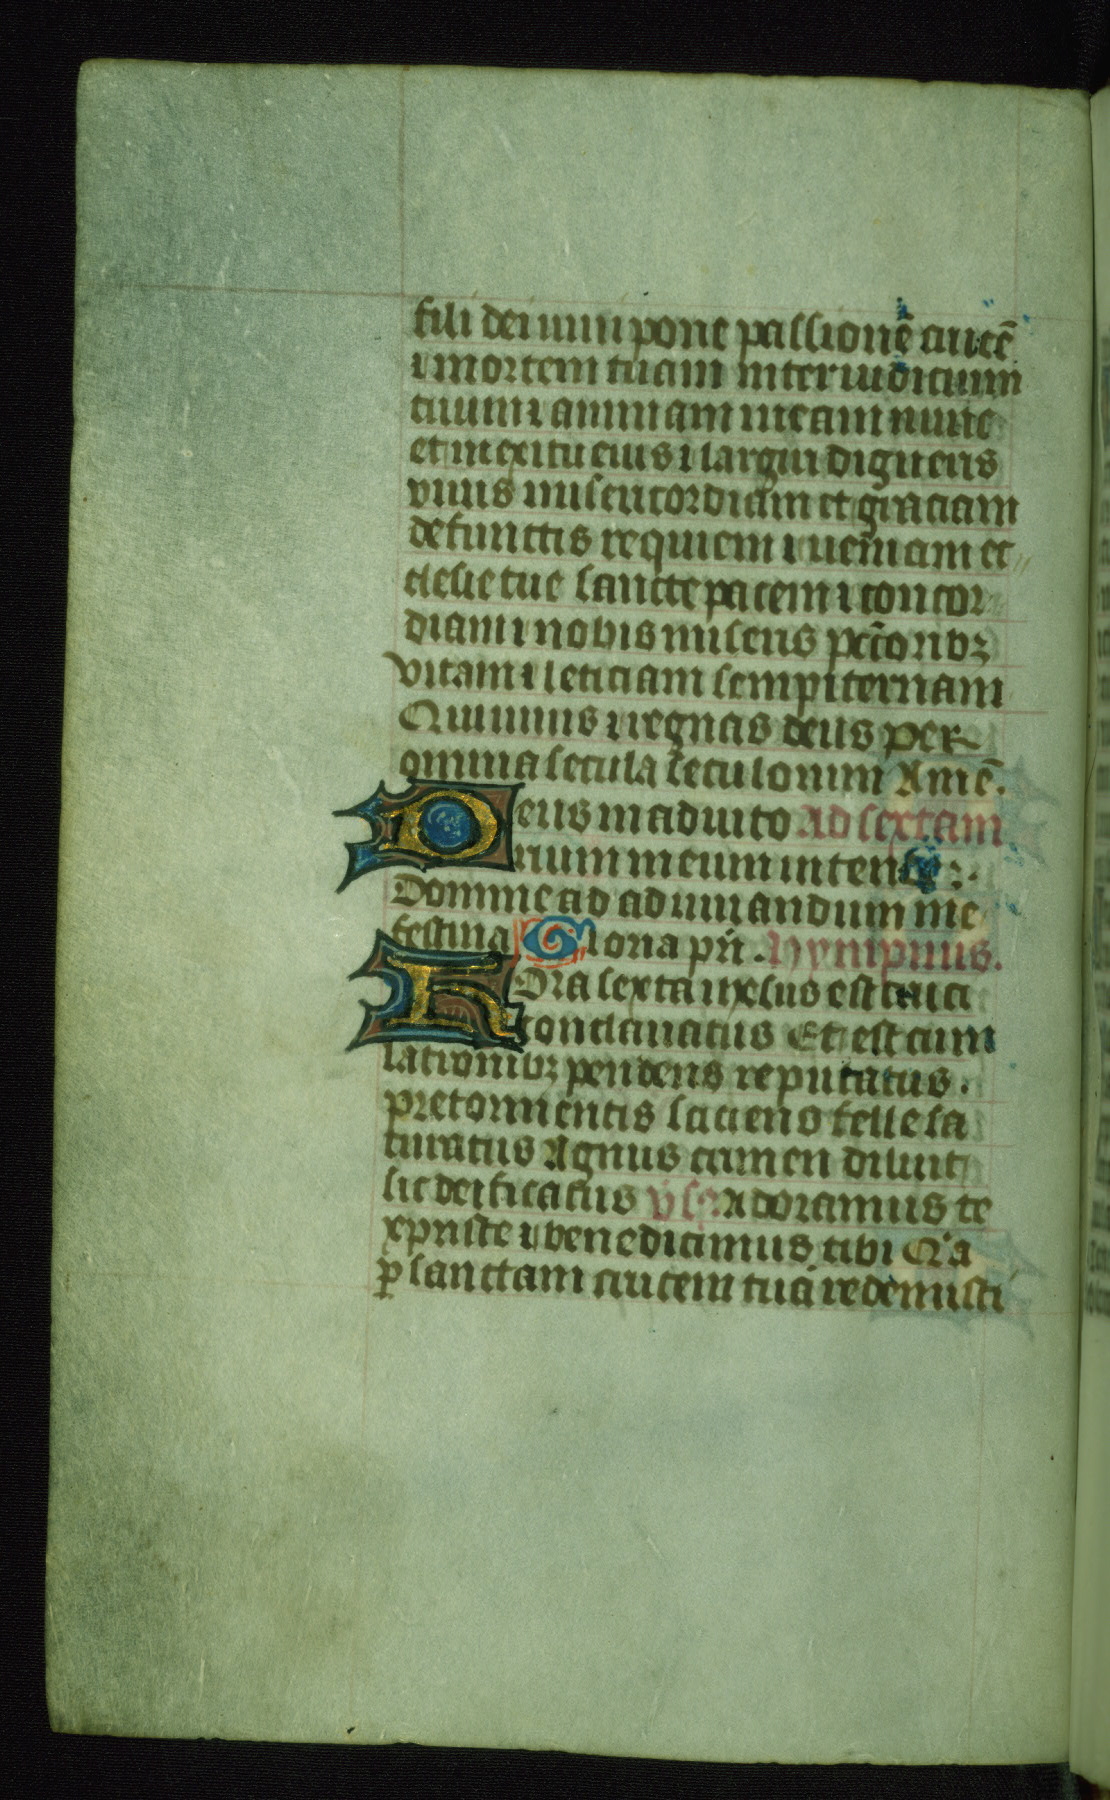 fili dei uiui pone passionē crucē
⁊ mortem tuam inter iudicium
tuum ⁊ animam meam nunc
et in exitu eius ⁊ largiri digneris
viuis misericordiam et graciam
defunctis requiem ⁊ ueniam ec
clesie tue sancte pacem ⁊ concor
diam ⁊ nobis miseris pcc̄oribꝫ
vitam ⁊ leticiam sempiternam
Qui uiuis ⁊ regnas deus per
omnia secula seculorum Amē.
Deus in adiuto Ad sextam
rium meum intende:.
Domine ad adiuuandum me
festina Gloria pr̄i. Hympnus.
Hora sexta ihesus est cruci
conclauatus Et est cum
latronibꝫ pendens reputatus.
pre tormentis siciens felle sa
turatus Agnus crimen diluit
sic deificatus Adoramus te
xpriste ⁊ benedicimus tibi Qꝛa
ꝑ sanctam crucem tuā redemisti